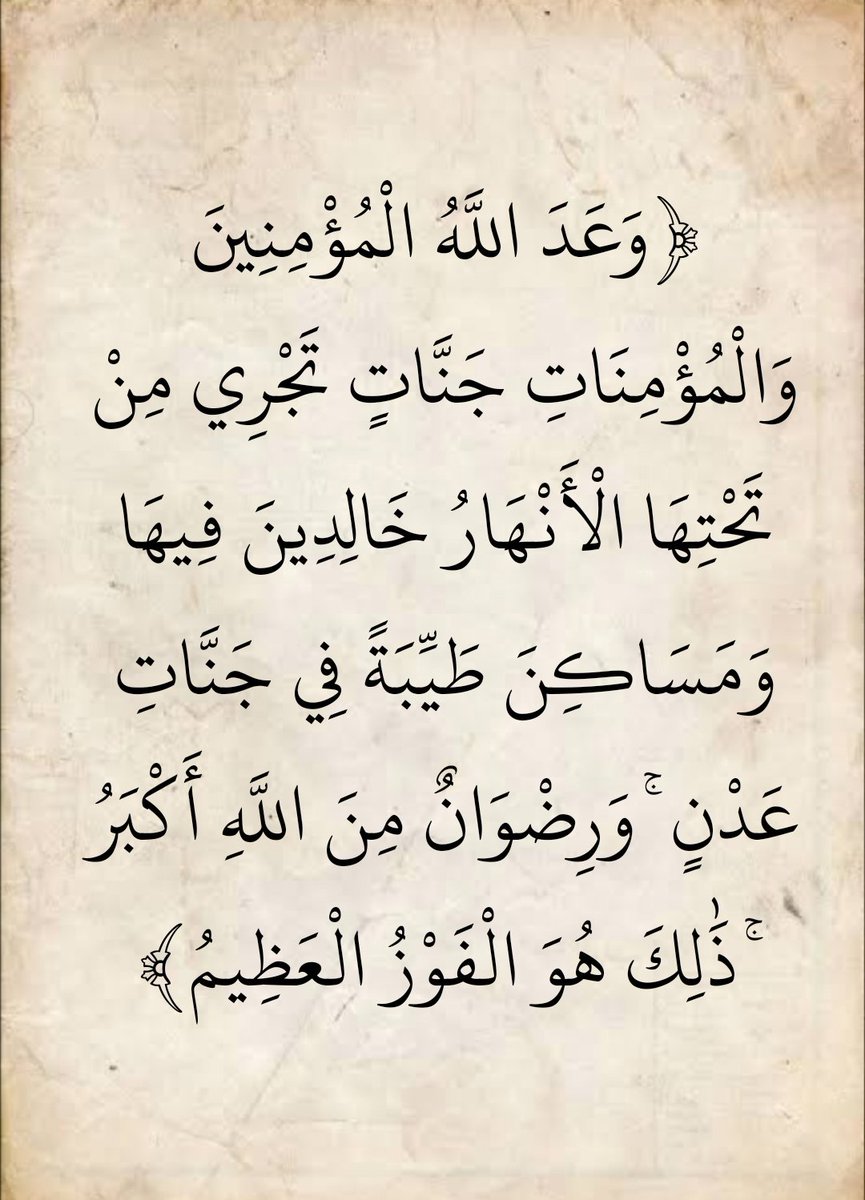 ﴿وَعَدَ اللَّهُ الْمُؤْمِنِينَ
وَالْمُؤْمِنَاتِ جَنَّاتٍ تَجْرِي مِنْ
تَحْتِهَا الْأَنْهَارُ خَالِدِينَ فِيهَا
وَمَسَاكِنَ طَيِّبَةً فِي جَنَّاتِ
عَدْنٍ ۚ وَرِضْوَانٌ مِنَ اللَّهِ أَكْبَرُ
ۚ ذَٰلِكَ هُوَ الْفَوْزُ الْعَظِيمُ﴾